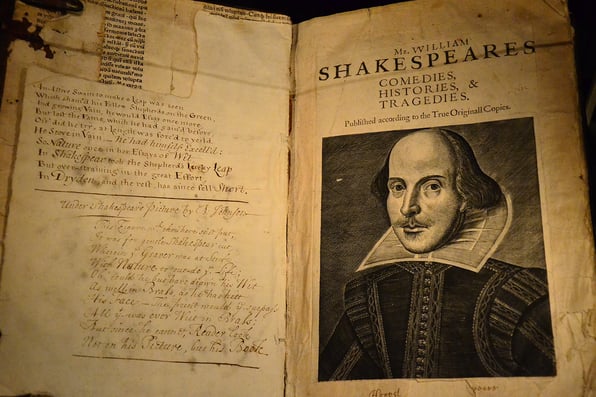 An Active Swain to make a Leap was seen
Which sham'd his Fellow Shepherds on the Green,
And growing Vain, he would Essay once more,
But lost the Fame, which he had gain'd before;
Oft' did he try, at length was forc'd to yield
He Strove in Vain — he had himself Excell'd:
So Nature once in her Essays of Wit,
In Shakespear took the Shepherd's Lucky Leap
But over-straining in the great Effort,
In Dryden, and the rest, has since fell Short.
Under Shakespears Picture by Johnson
This Figure thou here seest put,
It was for gentle Shakespear cut
Wherein y Graver was at
With Nature to outdoe y Life;
Oh could he but have drawn his Wit
As well in Brass as he has hitt
His Face — The print would surpass
All y was ever Writ in Brass;
But since he cannot, Reader look
Not on his Picture, but his Book
Mr. WILLIAM
SHAKESPEARES
COMEDIES,
HISTORIES, &
TRAGEDIES.
Published according to the True Originall Copies.